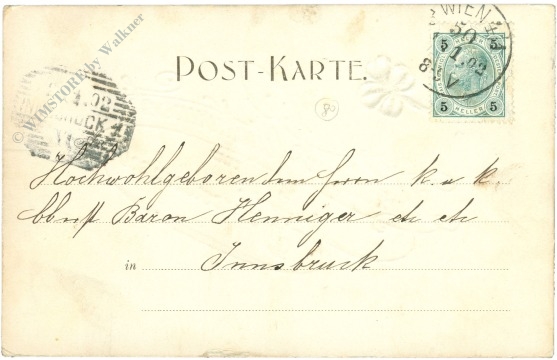 © WIMSTORE by Walkner
WIEN 4
50
1.02
8-V
5 5
5 HELLER 5
POST-KARTE.
.02
BRUCK
80
Hochwohlgeboren dem Herrn k. u. k.
Obrst Baron Henniger etc etc
in Innsbruck